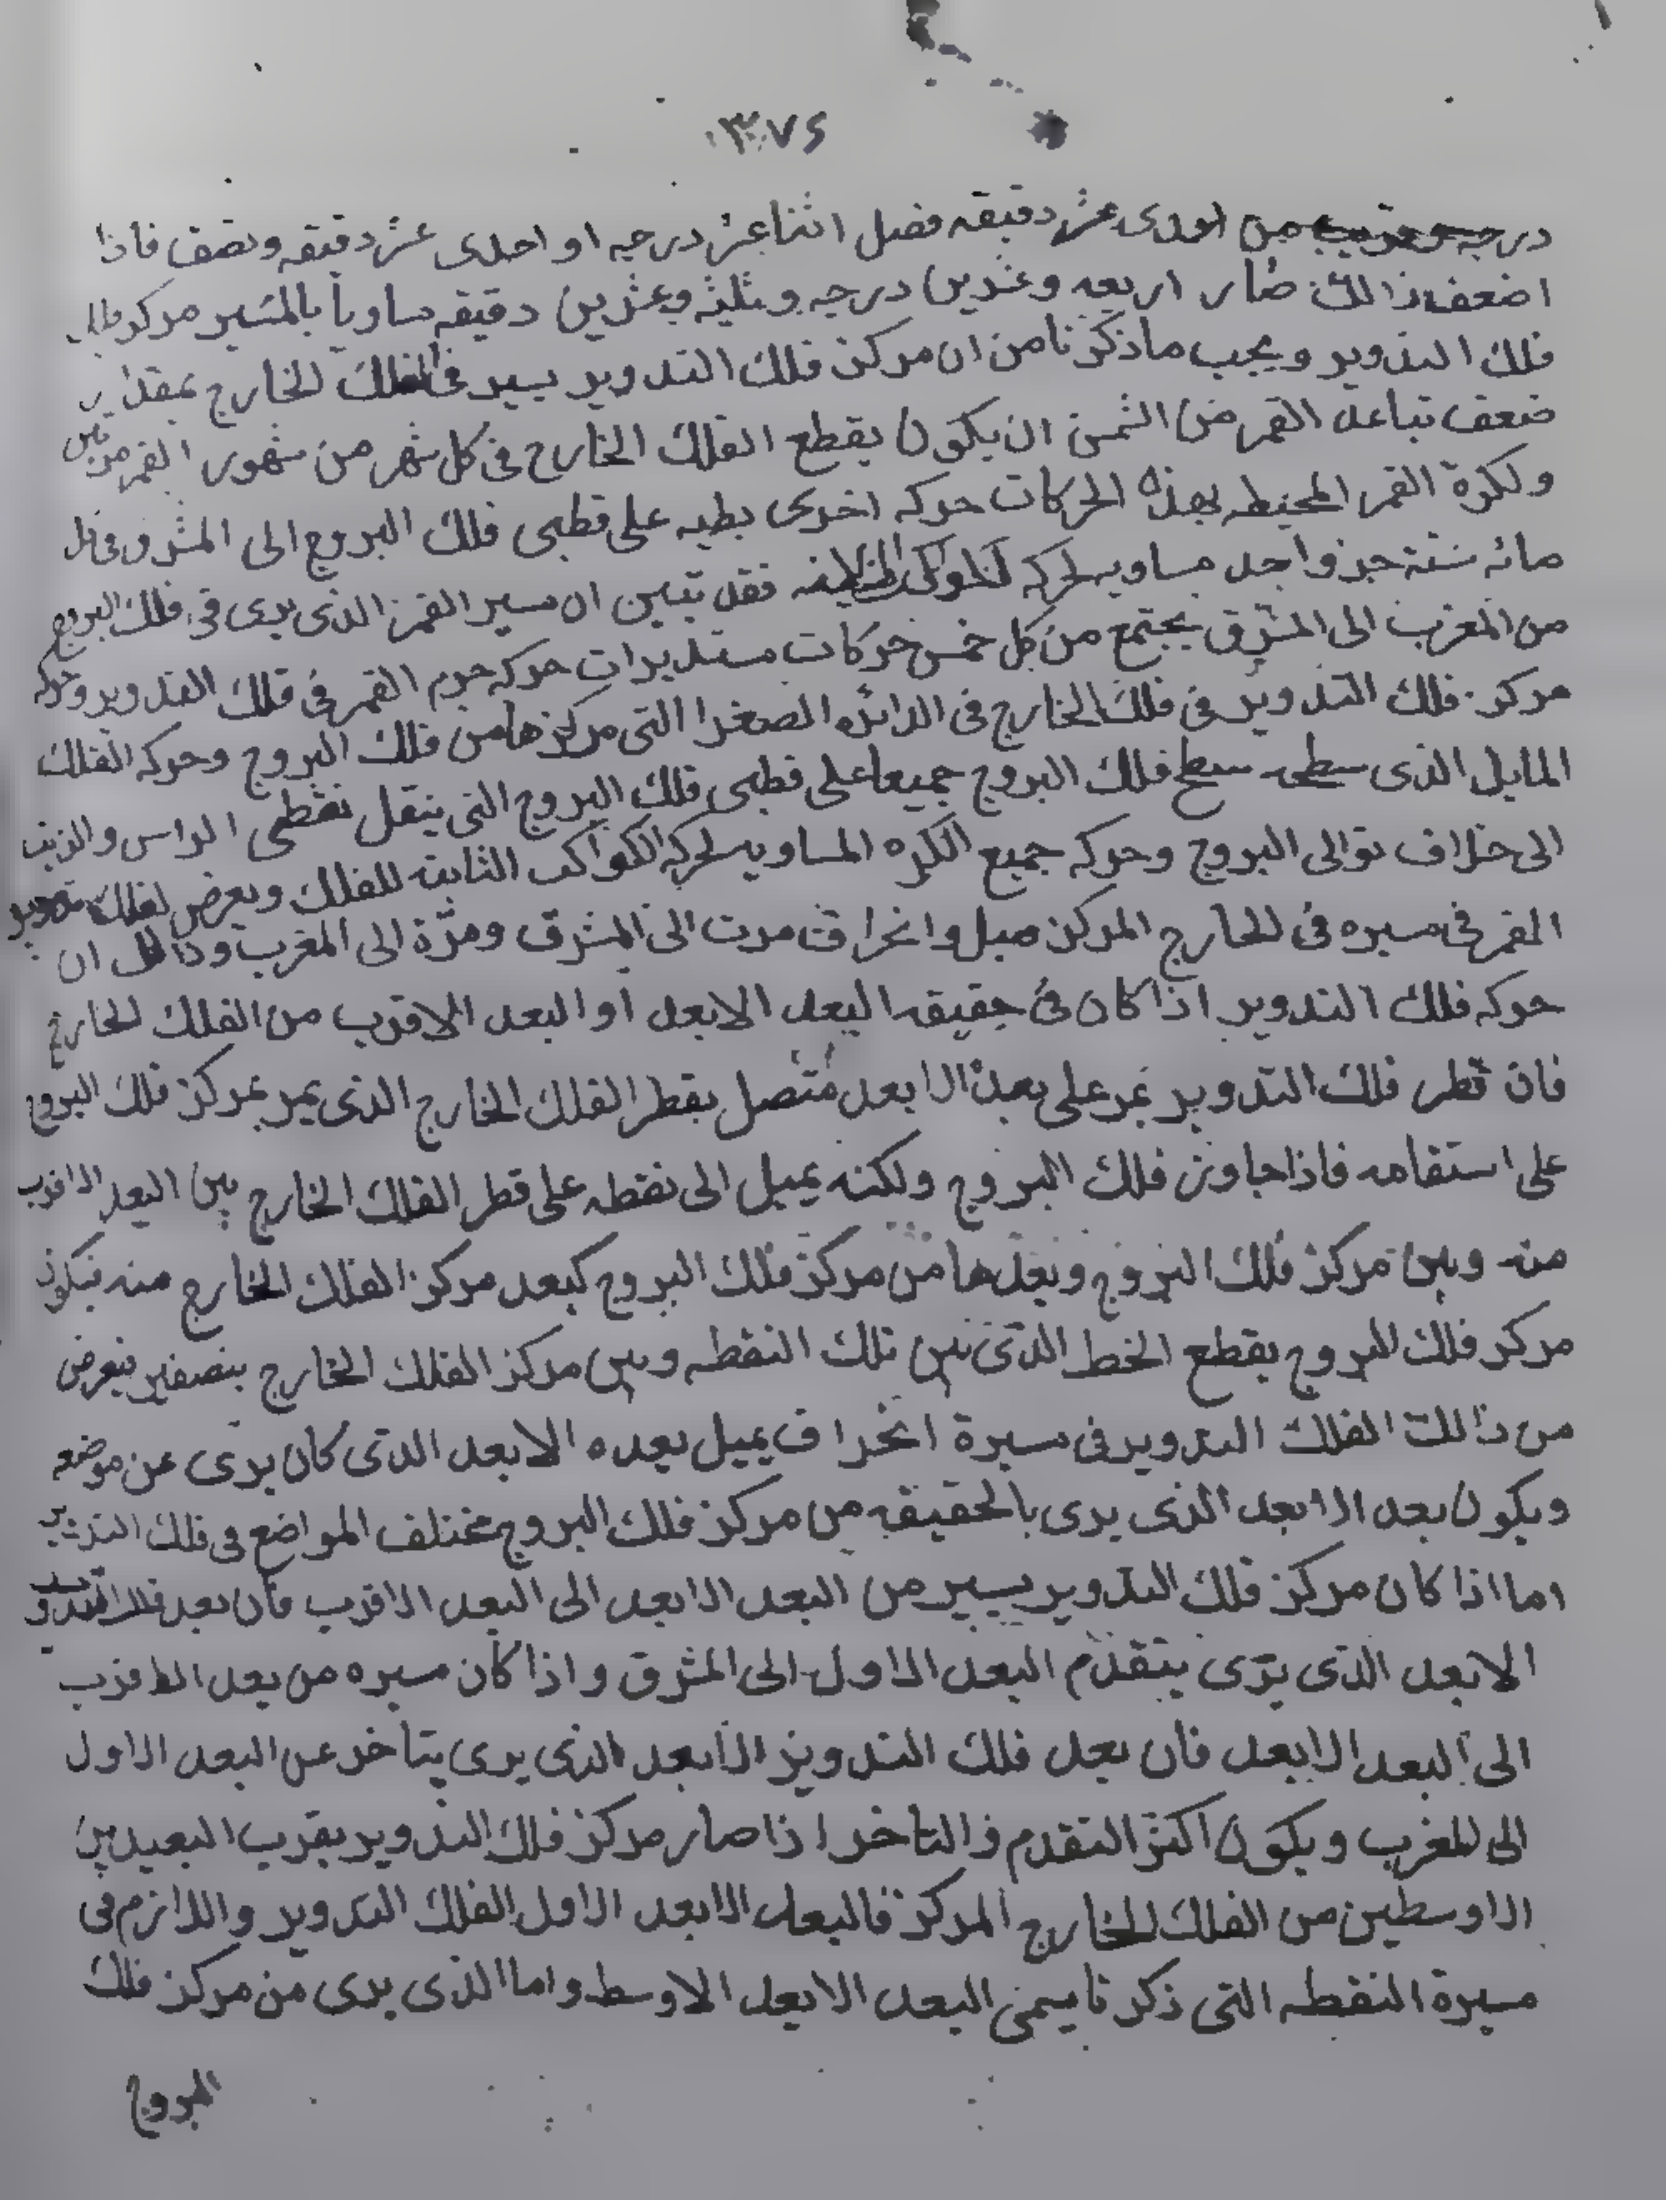 ٣٧٤
درجه من احدى عشر دقيقه فضل اثناعشر درجه او احدى عشر دقيقه ونصف فاذا
اضعف ذالك صار اربعه وعشرين درجه وثلثه وعشرين دقيقه مساويا بالمسير مركز
فلك التدوير ويجب ماذكرنا من ان مركز فلك التدوير يسير فى الفلك الخارج بمقدار
ضعف تباعد القمر من الشمس ان يكون يقطع الفلك الخارج فى كل شهر من شهور القمر مرتين
ولكرة القمر المحيطه بهذه الحركات حركه اخرى بطيه على قطبى فلك البروج الى المشرق فى كل
مائه سنة جزو واحد مساويه لحركه فقد تبين ان مسير القمر الذى يرى فى فلك البروج
من المغرب الى المشرق يجتمع من كل خمس حركات مستديرات حركه جرم القمر فى فلك التدوير وحركه
مركز فلك التدوير فى فلك الخارج فى الدائره الصغرا التى مركزها من فلك البروج وحركه الفلك
المايل الذى سطحه سطح فلك البروج جميعا على قطبى فلك البروج التى ينقل نقطتى الراس والذنب
الى خلاف توالى البروج وحركه جميع الكره المساويه لحركه الكواكب الثابته للفلك ويعرض لفلك تدوير
القمر فى مسيره فى الخارج المركز ميل وانحراف مرت الى المشرق ومرّة الى المغرب وذالك ان
حركه فلك التدوير اذا كان فى حقيقه البعد الابعد او البعد الاقرب من الفلك الخارج
فان قطر فلك التدوير يمر على بعده الابعد متصل بقطر الفلك الخارج الذى يمر بمركز فلك البروج
على استقامه فاذا جاوز فلك البروج ولكنه يميل الى نقطه على قطر الفلك الخارج بين البعد الاقرب
منه وبين مركز فلك البروج وبعدها من مركز فلك البروج كبعد مركز الفلك الخارج منه فيكون
مركز فلك البروج يقطع الخط الذى بين تلك النقطه وبين مركز الفلك الخارج بنصفين فيعرض
من ذالك الفلك التدوير فى مسيرة انحراف يميل بعده الابعد الذى كان يرى عن موضعه
ويكون بعد الابعد الذى يرى بالحقيقه من مركز فلك البروج مختلف المواضع فى فلك التدوير
اما اذا كان مركز فلك التدوير يسير من البعد الابعد الى البعد الاقرب فان بعد فلك التدوير
الابعد الذى يرى يتقدم البعد الاول الى المشرق واذا كان مسيره من بعد الاقرب
الى البعد الابعد فان بعد فلك التدوير الابعد الذى يرى يتاخر عن البعد الاول
الى المغرب ويكون اكثر التقدم والتاخر اذا صار مركز فلك التدوير بقرب البعيدين
الاوسطين من الفلك الخارج المركز فالبعد الابعد الاول الفلك التدوير واللازم فى
مسيرة النقطه التى ذكرنا يسمى البعد الابعد الاوسط واما الذى يرى من مركز فلك
البروج